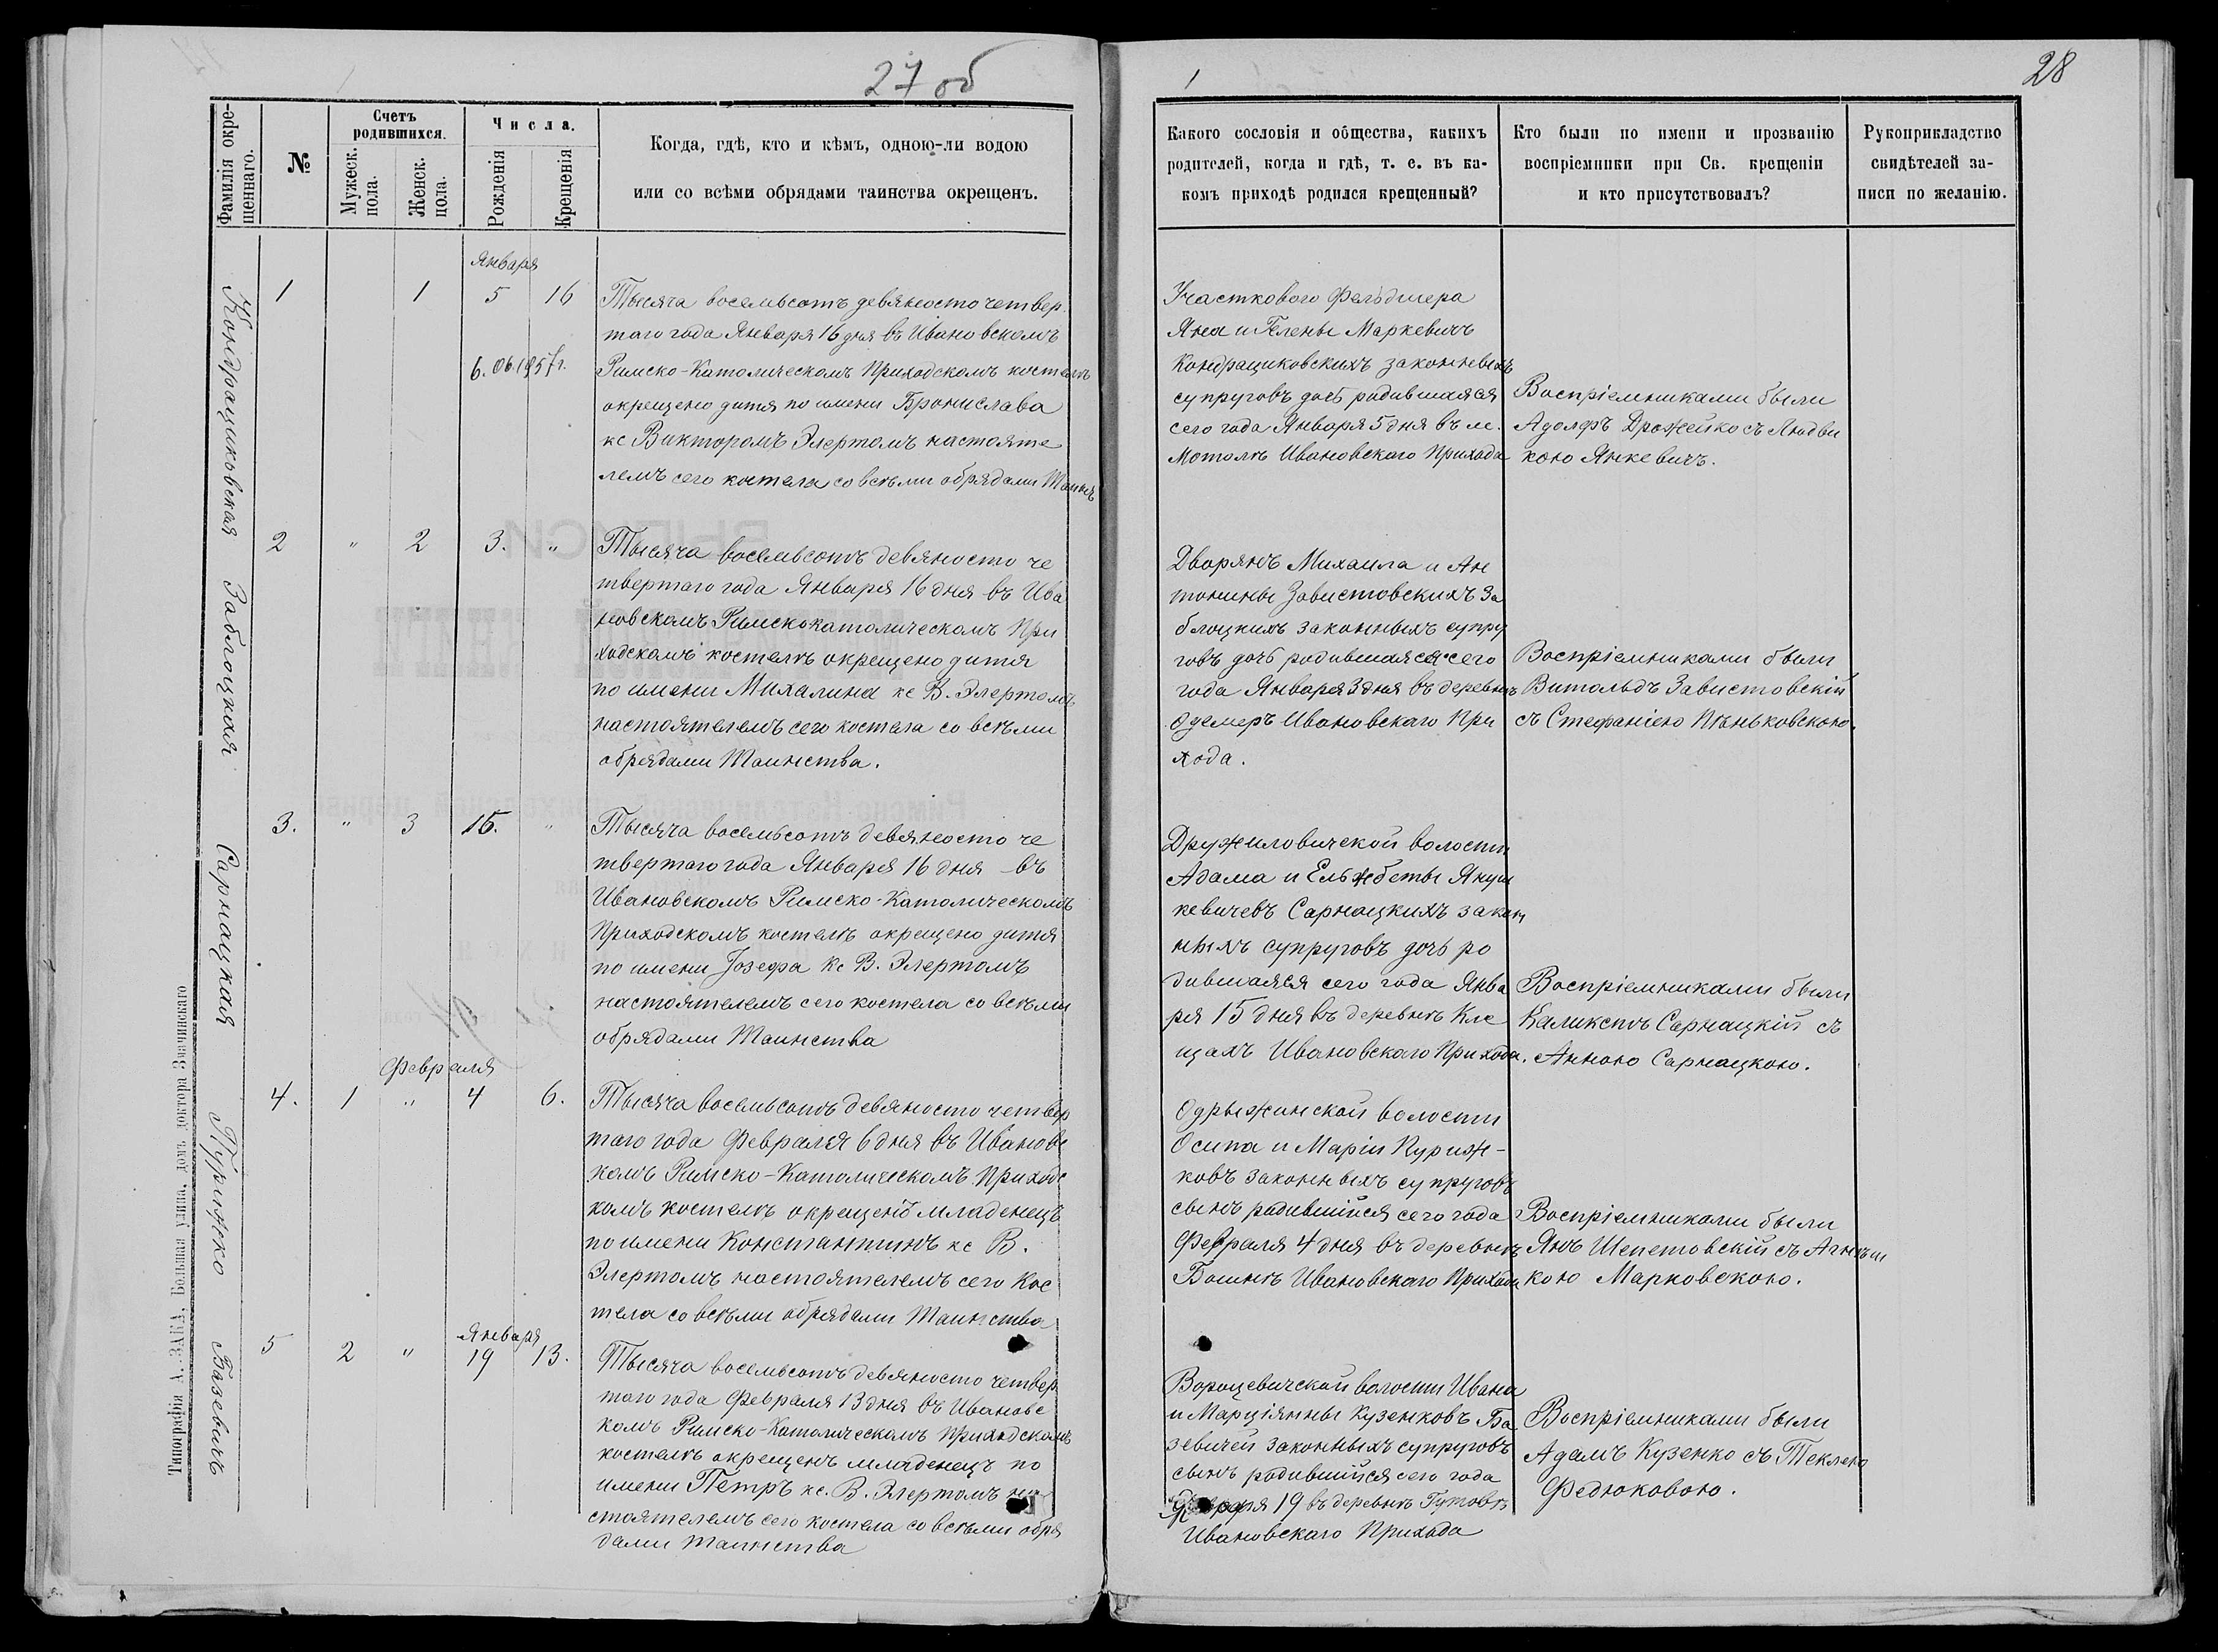 27 об
Фамилія окре-
щеннаго.
№
Счетъ
родившихся.
Мужеск.
пола.
Женск.
пола.
Числа.
Рожденія
Крещенія
Когда, гдѣ, кто и кѣмъ, одною-ли водою
или со всѣми обрядами таинства окрещенъ.
Кондрациковская
1
1
Января
5
16
6.06.1957г.
Тысяча восемьсотъ девяносто четвер
таго года Января 16 дня въ Ивановскомъ
Римско-Католическомъ Приходскомъ костелѣ
окрещено дитя по имени Бронислава
кс Викторомъ Элертомъ настояте
лемъ сего костела со всѣми обрядами Таинств
Заблоцкая
2
"
2
3.
"
Тысяча восемьсотъ девяносто че
твертаго года Января 16 дня въ Ива
новскомъ Римскокатолическомъ При
ходскомъ костелѣ окрещено дитя
по имени Михалина кс В. Элертомъ
настоятелемъ сего костела со всѣми
обрядами Таинства.
Сарнацкая
3.
"
3
15.
"
Тысяча восемьсотъ девяносто че
твертаго года Января 16 дня въ
Ивановскомъ Римско-Католическомъ
Приходскомъ костелѣ окрещено дитя
по имени Іозефа кс В. Элертомъ
настоятелемъ сего костела со всѣми
обрядами Таинства
Пурижко
Февраля
4.
1
"
4
6.
Тысяча восемьсотъ девяносто четвер
таго года Февраля 6 дня въ Ивановс
комъ Римско-Католическомъ Приходс
комъ костелѣ окрещенъ младенецъ
по имени Константинъ кс В.
Элертомъ настоятелемъ сего Кос
тела со всѣми обрядами Таинства
Базевичъ
Января
5
2
"
19
13.
Тысяча восемьсотъ девяносто четвер
таго года Февраля 13 дня въ Ивановс
комъ Римско-Католическомъ Приходскомъ
костелѣ окрещенъ младенецъ по
имени Петръ кс. В. Элертомъ на
стоятелемъ сего костела со всѣми обря
дами таинства
Типографія А. ЗАКА, Большая улица, домъ доктора Значинскаго
1
28
Какого сословія и общества, какихъ
родителей, когда и гдѣ, т. е. въ ка-
комъ приходѣ родился крещенный?
Кто были по имени и прозванію
воспріемники при Св. крещеніи
и кто присутствовалъ?
Рукоприкладство
свидѣтелей за-
писи по желанію.
Участковаго Фельдшера
Яна и Гелены Маркевичъ
Кондрациковскихъ законныхъ
супруговъ дочь родившаяся
сего года Января 5 дня въ м.
Мотолѣ Ивановскаго Прихода
Воспріемниками были
Адолфъ Дрожейко съ Людви
кою Янкевичъ.
Дворянъ Михаила и Ан
тонины Завистовскихъ За
блоцкихъ законныхъ супру
говъ дочь родившаяся сего
года Января 3 дня въ деревнѣ
Одемеръ Ивановскаго При
хода.
Воспріемниками были
Витольдъ Завистовскій
съ Стефаніею Пѣньковскою.
Дружиловичской волости
Адама и Ельжбеты Януш
кевичевъ Сарнацкихъ закон
ныхъ супруговъ дочь ро
дившаяся сего года Янва
ря 15 дня въ деревнѣ Кле
щахъ Ивановскаго Прихода.
Воспріемниками были
Каликстъ Сарнацкій съ
Анною Сарнацкою.
Одрыжинской волости
Осипа и Маріи Пуриж-
ковъ законныхъ супруговъ
сынъ родившійся сего года
Февраля 4 дня въ деревнѣ
Ивановскаго Прихода
Воспріемниками были
Янъ Шепетовскій съ Агнѣш
кою Марковскою.
Вороцевичской волости Ивана
и Марціянны Кузенковъ Ба
зевичей законныхъ супруговъ
сынъ родившійся сего года
19 въ деревнѣ Гутовѣ
Ивановскаго Прихода
Воспріемниками были
Адамъ Кузенко съ Теклею
Федюковою.